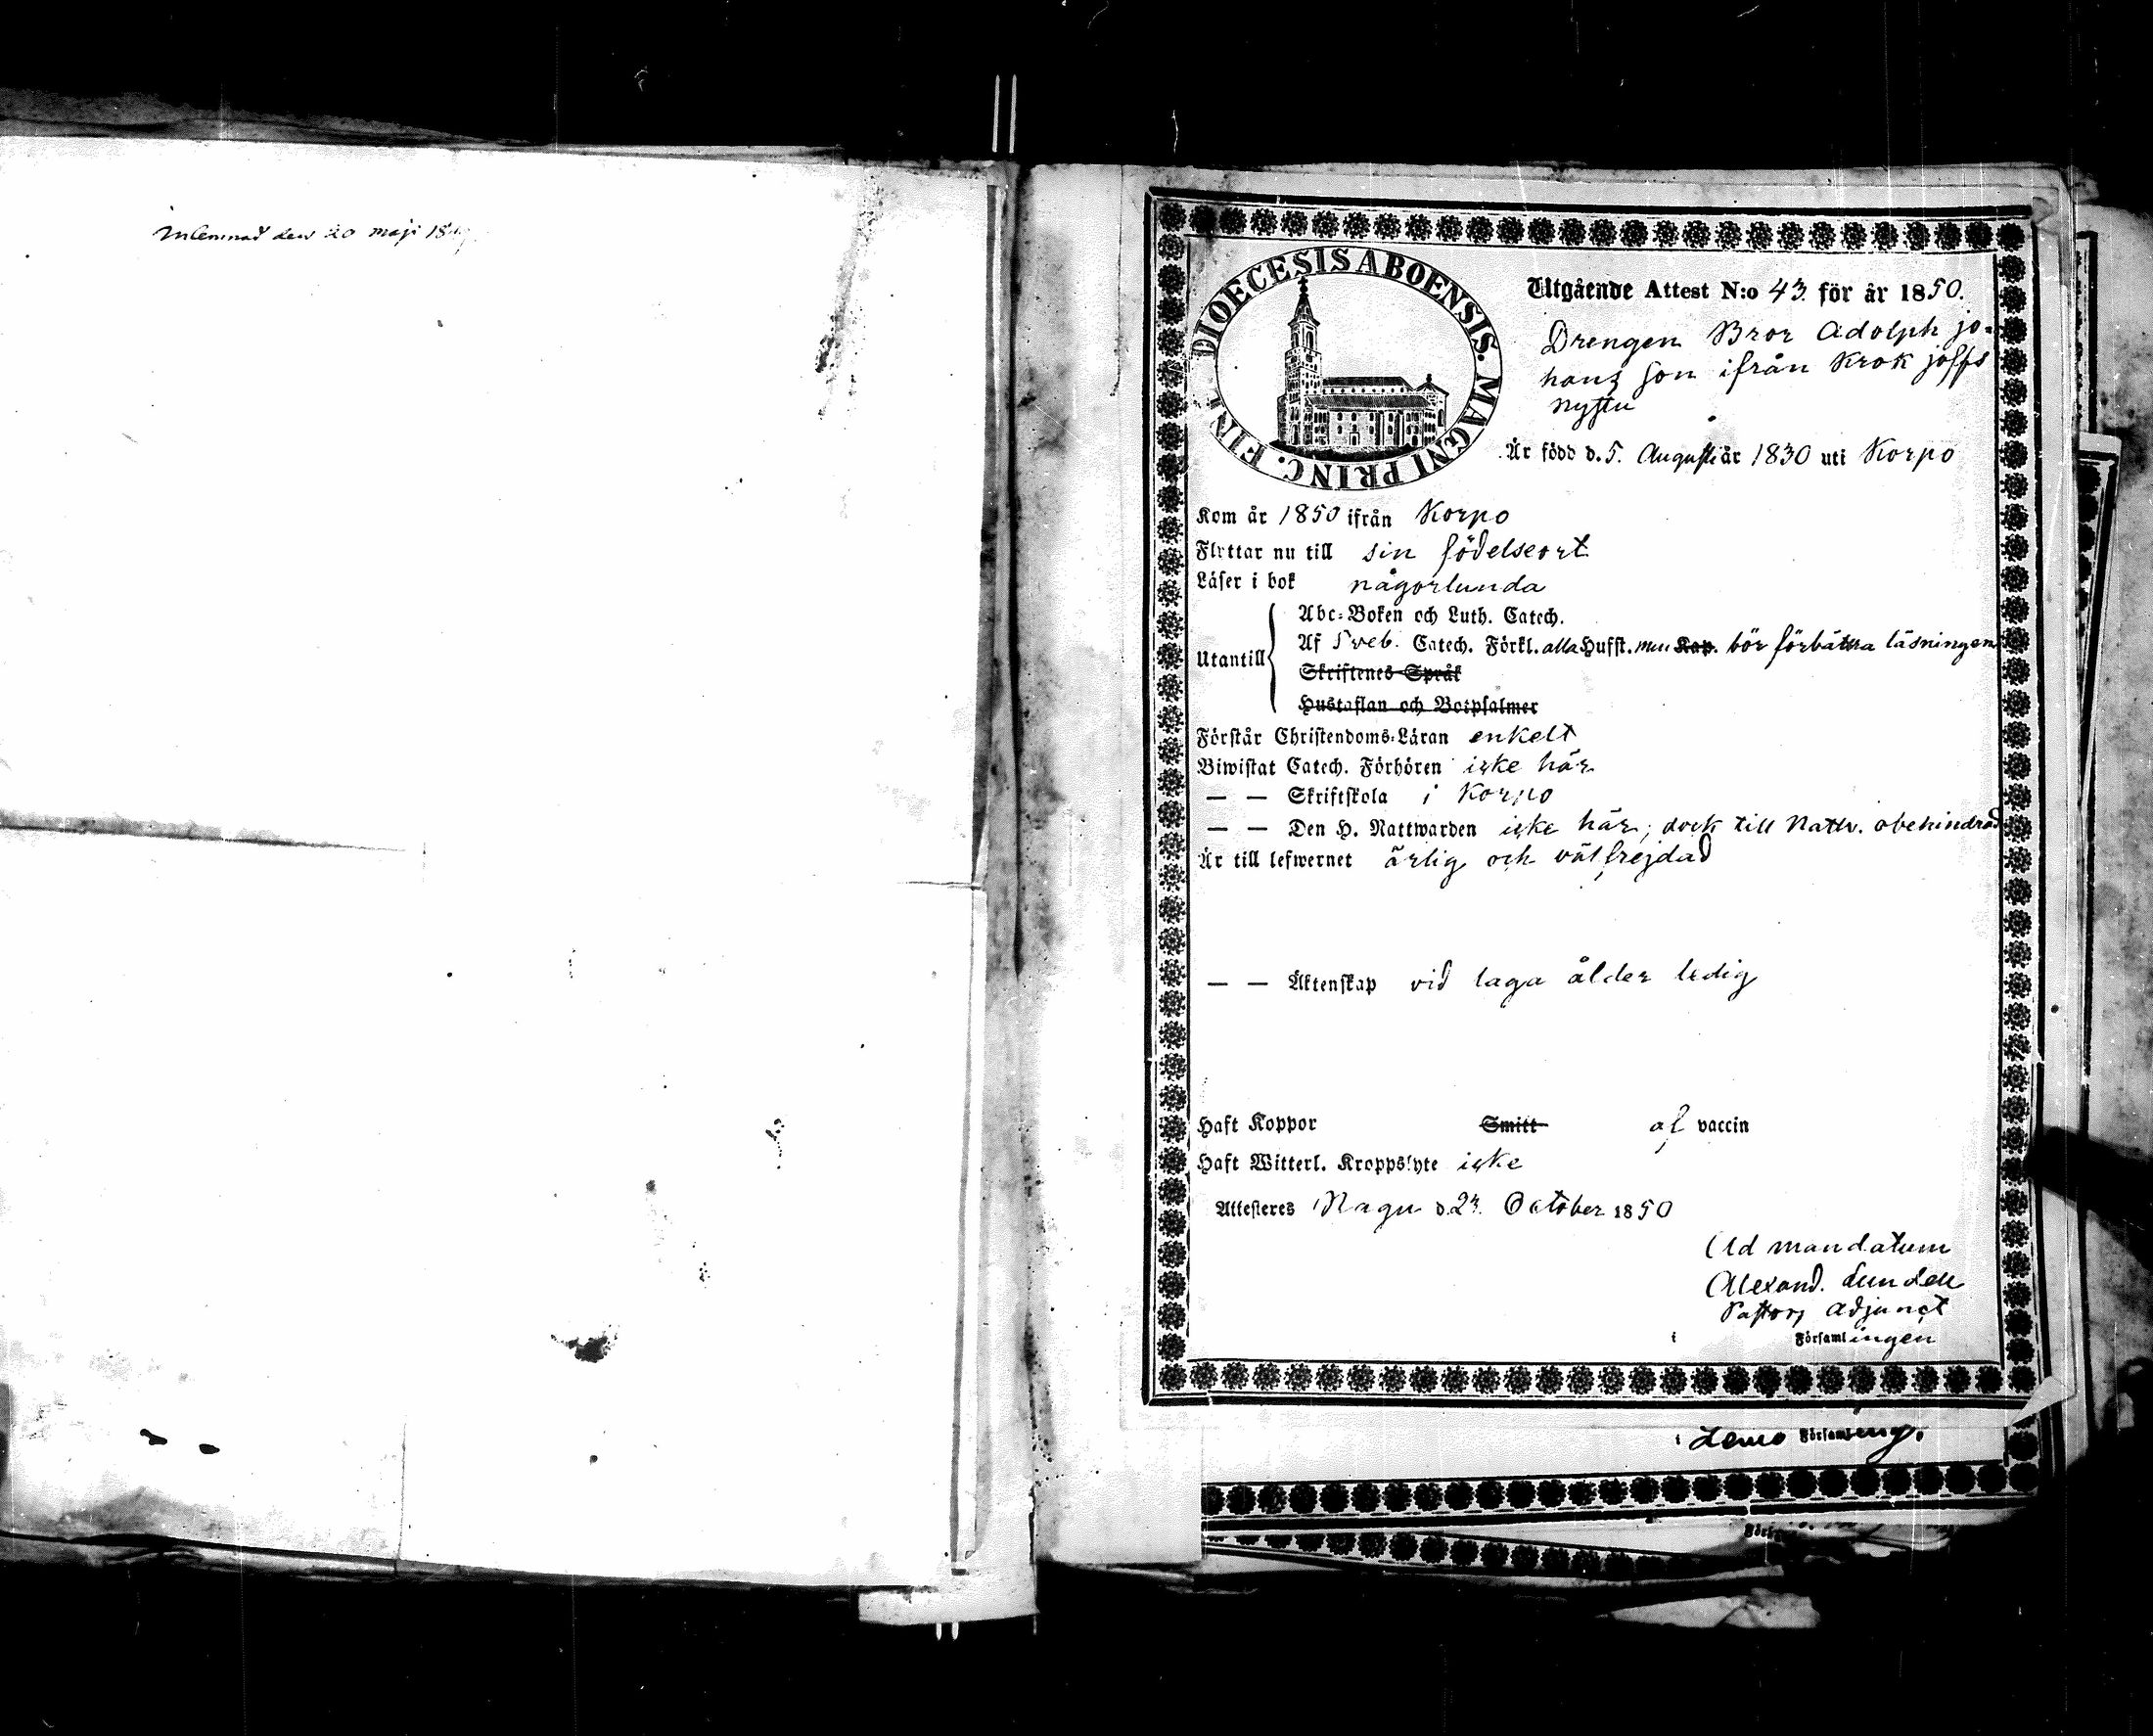 Inlemnad den 20 maji
DIOECESIS ABOENSIS. MAGNI PRINC. FINL.
Utgående Attest N:o 43. för år 1850.
Drengen Bror Adolph jo-
hans Son ifrån Krok joffs
nystu
Är född d. 5. Augusti år 1830 uti Korpo
Kom år 1850 ifrån Korpo
Flyttar nu till sin födelseort
Läser i bok någorlunda
Abc-Boken och Luth. Catech.
Utantill Af Sveb. Catech. Förkl. alla Hufst. men Kap. bör förbättra läsningen
Skriftenes Språk
Hustaflan och Botpsalmer
Förstår Christendoms-Läran enkelt
Biwistat Catech. Förhören icke här
— — Skriftskola i Korpo
— — Den H. Nattwarden icke här, dock till Nattv. obehindrad
Är till lefwernet ärlig och välfrejdad
— — Äktenskap vid laga ålder ledig
Haft Koppor Smitt af vaccin
Haft Witterl. Kroppslyte icke
Attesteres Nagu d. 23. October 1850
Ad mandatum
Alexand. Lundell
Pastors Adjunct
i Församlingen
i Lemo Församling.